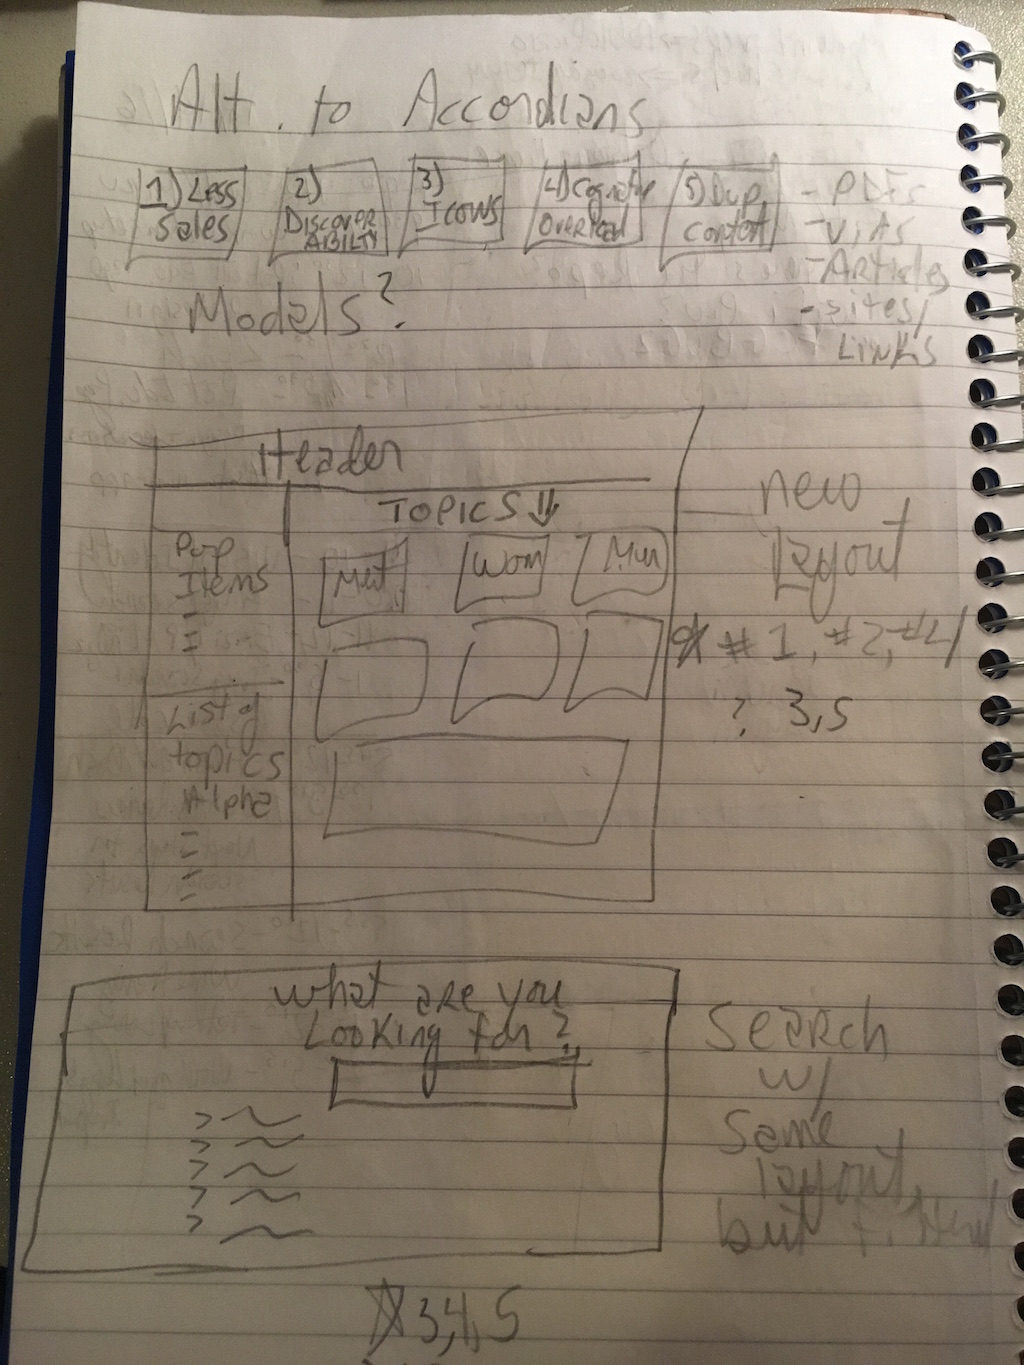 Alt. to Accordians
1) Less Sales
2) DISCOVER ABILTY
3) Icons
4) Cognitive Overload
5) Dup. content
- PDFs
- Vids
- Articles
- sites/
LINKS
Models?
Header
TOPICS ↓
Pop
Items
Wom
new
layout
# 1, #2, #4
? 3,5
List of
topics
Alpha
What are you
Looking for?
Search
w/
same
layout,
but
3,4,5